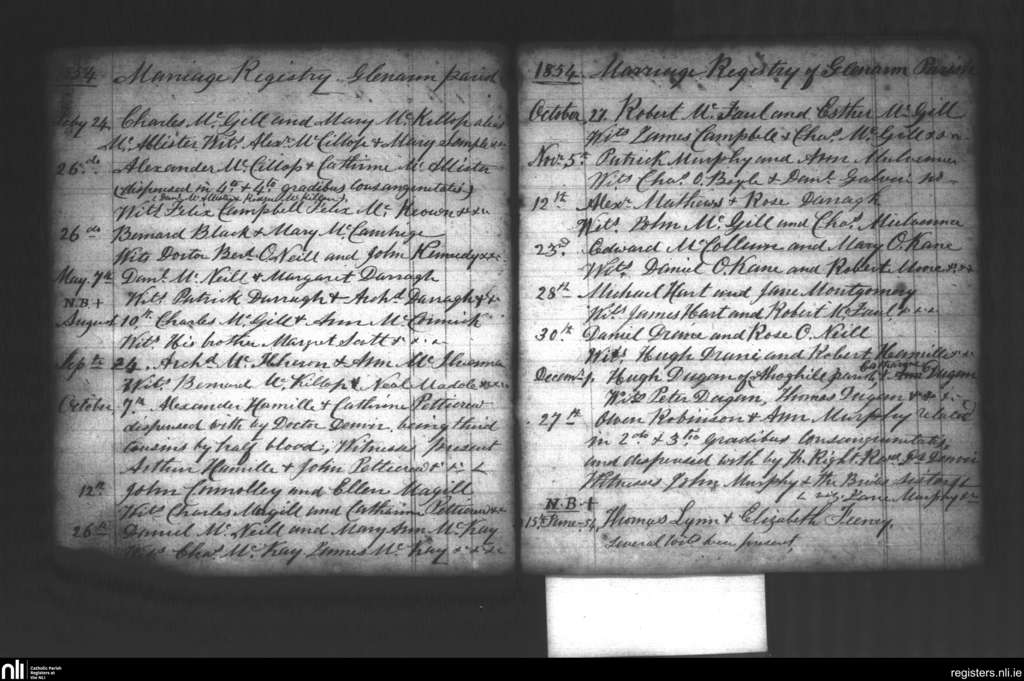 1854 Marriage Registry Glenarm parish
Feby 24 Charles Mc. Gill and Mary Mc. Killop alias
Mc. Allister Wits. Alexr. Mc Cillop & Mary Semple &c
26 do. Alexander Mc. Cillop & Cathrine Mc Allister
(dispensed in 4to. & 4to. gradibus consanguinitatis)
Wits. Felix Campbell Felix Mc. Keown &c &c
26 do Bernard Black & Mary Mc. Cambrige
Wits Doctor Bernd. O. Neill and John Kennedy &c &c
May. 7th Danl. Mc. Neill & Margaret Darragh
N.B + Wits. Patrick Darragh & Archd. Darragh &c
August 10th. Charles Mc. Gill & Ann Mc. Cormick
Wits His brother Margret Scott & &c
Septe 24. Archd. Mc. Ilheron & Ann Mc
Wits. Bernard Mc. Killop & Neal Madole &c &c
October 7th. Alexander Hamille & Cathrine Petticrew
dispensed with by Doctor Denvir, being third
cousins by half blood, Witnesses present
Arthur Hamille & John Petticrew &c &c
12th. John Connolley and Ellen Magill
Wits Charles Magill and Cathrine Petticrew &c
26th Daniel Mc. Neill and Mary Ann Mc. Kay
Wits. Chas. Mc. Kay James Mc. Kay &c &c &c
1854. Marriage Registry of Glenarm Parish
October 27. Robert Mc. Faul and Esther Mc. Gill
Wits James Campble & Chas. Mc. Gill &c &c
Novr. 5th Patrick Murphy and Ann Mulvenna
Wits. Chas. O. Boyle & Danl. Galvin &c
12th Alexr. Mathews & Rose Darragh
Wits. John Mc. Gill and Chas. Mulvenna
23rd. Edward Mc Collum and Mary O. Kane
Wits. Daniel O. Kane and Robert Moore &c &c
28th Michael Hart and Jane Montgomery
Wits. James Hart and Robert Mc. Faul &c &c
30th. Daniel Draine and Rose O. Neill
Wits. Hugh Draine and Robert Hamille &c &c
Decemr. 1. Hugh Dugan of Ahoghill parish & Catharine Dugan
Wits Peter Dugan, Thomas Dugan &c &c
27th Owen Robinson & Ann Murphy related
in 2do & 3tio gradibus consanguinitatis,
and dispensed with by the Right Revd. Dr Denvir
Witnesses John Murphy & the Brides sister
viz. Jane Murphy &c
N.B +
15th June 54, Thomas Lynn & Elizabeth Feeney.
Several Wits been present,
nli Catholic Parish Registers at the NLI
registers.nli.ie